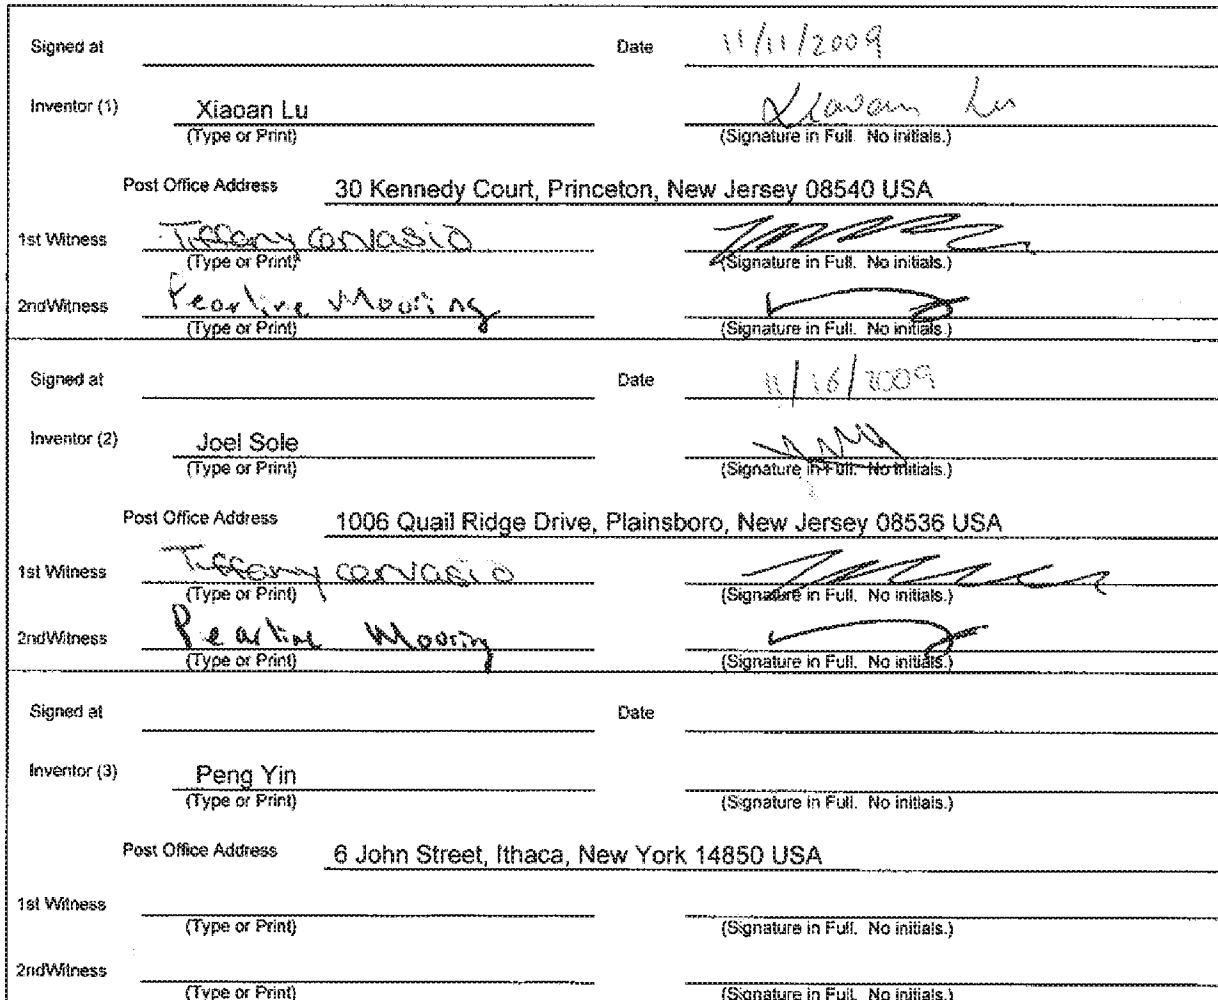 Signed at Date 11/11/2009
Inventor (1) Xiaoan Lu Xiaoan Lu
(Type or Print) (Signature in Full. No initials.)
Post Office Address 30 Kennedy Court, Princeton, New Jersey 08540 USA
1st Witness Tiffany Corvasio
(Type or Print) (Signature in Full. No initials.)
2ndWitness Pearline Mooring
(Type or Print) (Signature in Full. No initials.)
Signed at Date 11/16/2009
Inventor (2) Joel Sole
(Type or Print) (Signature in Full. No initials.)
Post Office Address 1006 Quail Ridge Drive, Plainsboro, New Jersey 08536 USA
1st Witness Tiffany Corvasio
(Type or Print) (Signature in Full. No initials.)
2ndWitness Pearline Mooring
(Type or Print) (Signature in Full. No initials.)
Signed at Date
Inventor (3) Peng Yin
(Type or Print) (Signature in Full. No initials.)
Post Office Address 6 John Street, Ithaca, New York 14850 USA
1st Witness
(Type or Print) (Signature in Full. No initials.)
2ndWitness
(Type or Print) (Signature in Full. No initials.)